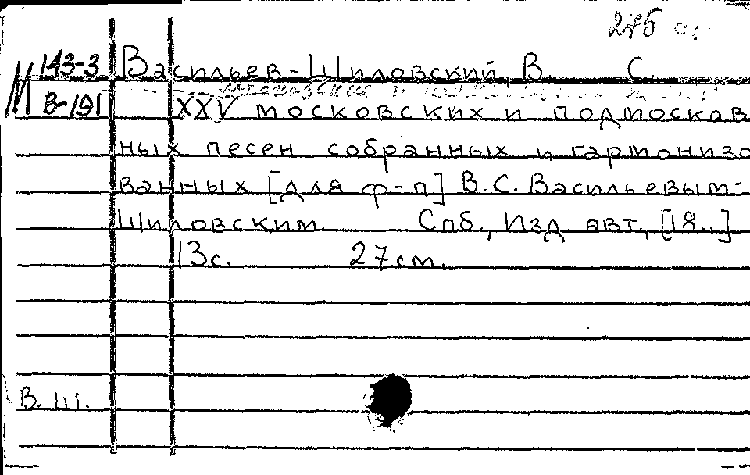 М 143-3 Васильев-Шиловский, В. С.
В-191
XXV московских и подмосков
ных песен собранных и гармонизо
ванных [для ф-п] В.С. Васильевым-
Шиловским. Спб., Изд. авт., [18..]
13с. 27см.
В. Ш.